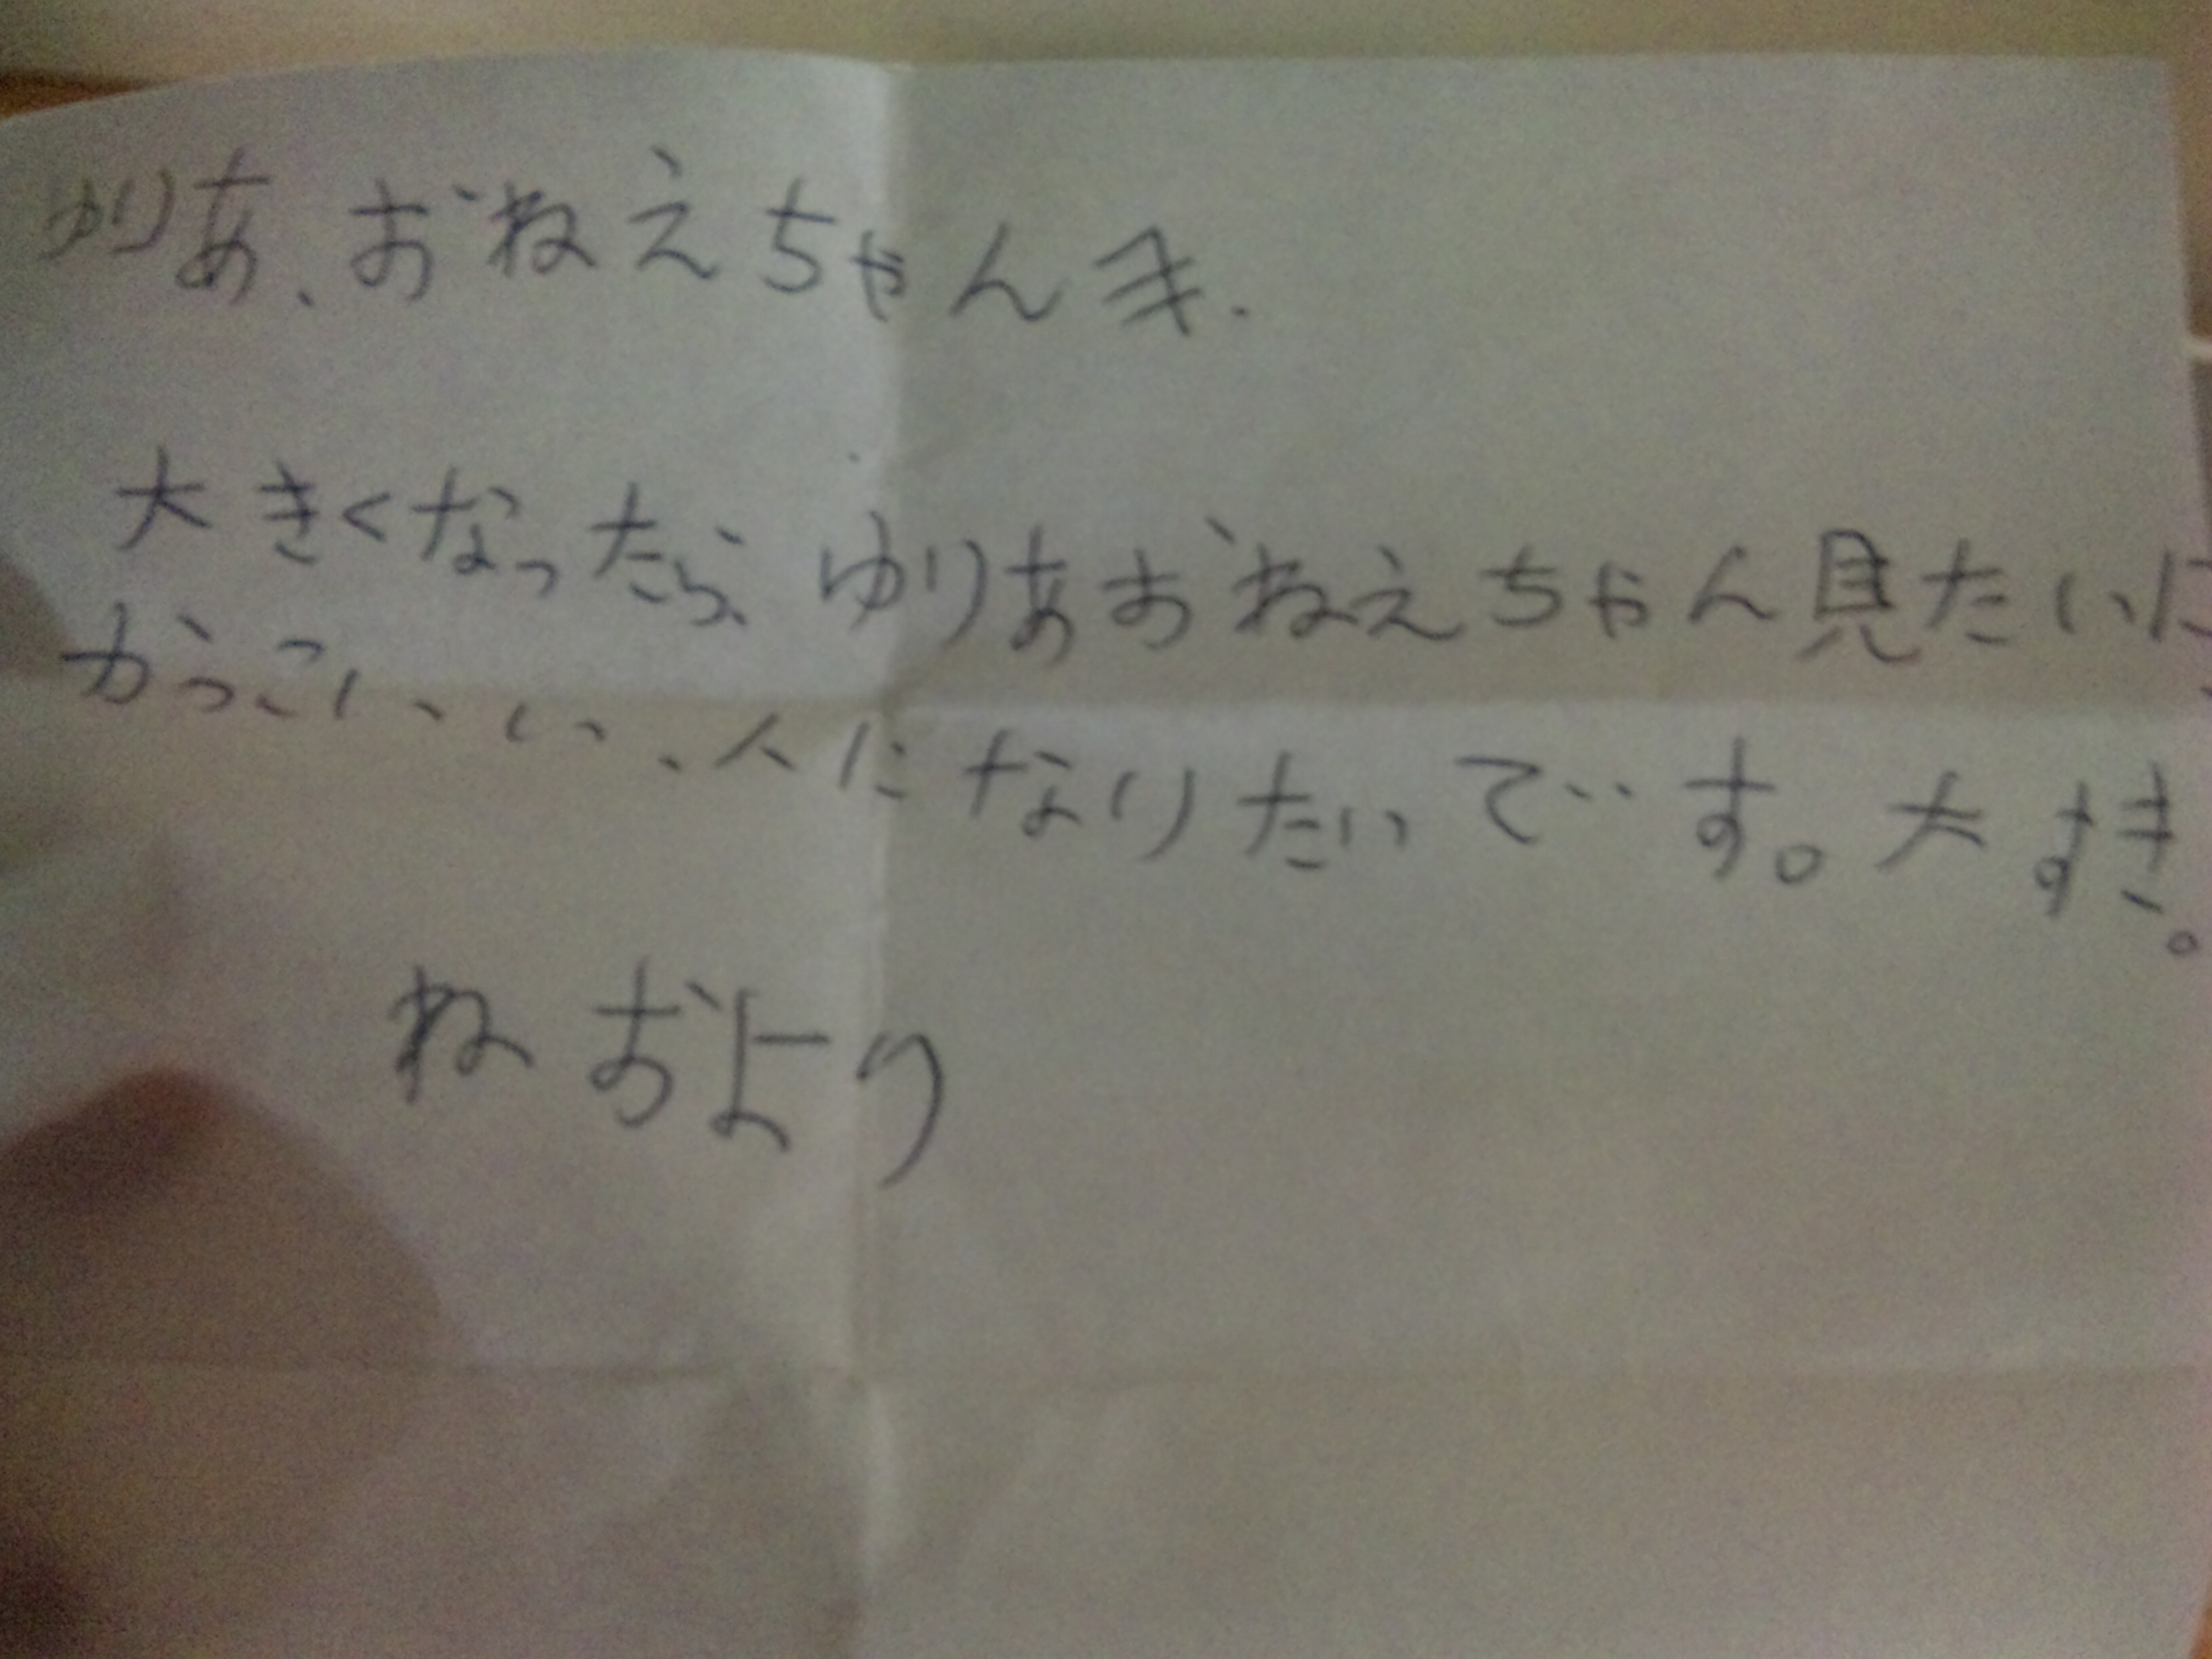 ゆりあ、おねえちゃんへ.
大きくなったら、ゆりあおねえちゃん見たいに、
かっこいい、人になりたいです。大すき。
ねおより